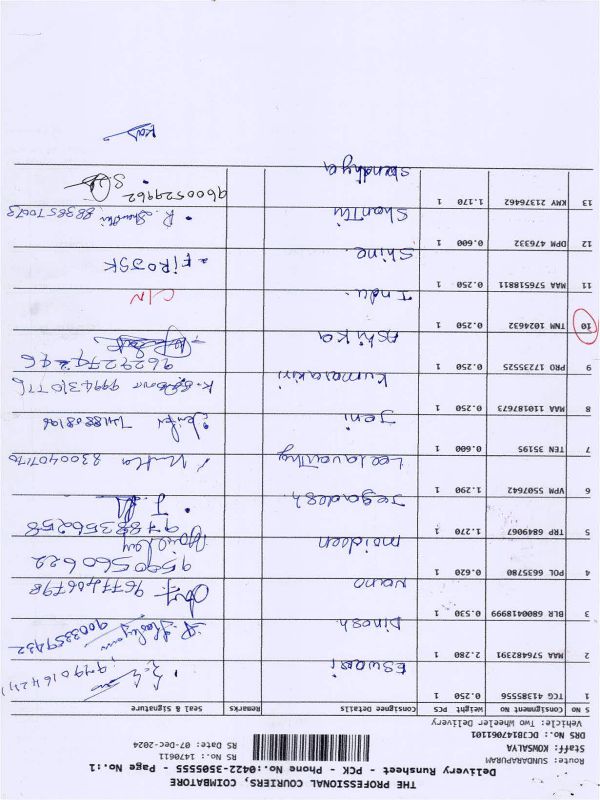 THE PROFESSIONAL COURIERS, COIMBATORE
Delivery Runsheet - PCK - Phone No.:0422-3505555 - Page No.:1
Route: SUNDARAPURAM
Staff: KOWSALYA
DRS No.: DCJB147061101
Vehicle: Two Wheeler Delivery
RS No.: 1470611
RS Date: 07-Dec-2024
S No Consignment No Weight PCS Consignee Details Remarks Seal & Signature
1 TCG 41385556 0.250 1 Eswari
2 MAA 576482391 2.280 1 Dinesh 9003359432
3 BLR 6800418999 0.530 1 Vano 9677406798
4 POL 6635780 0.620 1 moideen 9590560622
5 TRP 6849067 1.270 1 Jegadesh 9788356258
6 VPM 5507642 1.290 1 Leelavathy 8300407170
7 TEN 35195 0.600 1 Jeni
8 MAA 110187673 0.250 1 Kumarakiri 9994310776
9 PRO 17235525 0.250 1 Ashika
10 TNM 1024632 0.250 1 Indu C/N
11 MAA 576518811 0.250 1 Shine FIROJSK
12 DPM 476332 0.600 1 Shanthi R. Shanthi 8838570673
13 KMY 21376462 1.170 1 Sandhya 9600529962